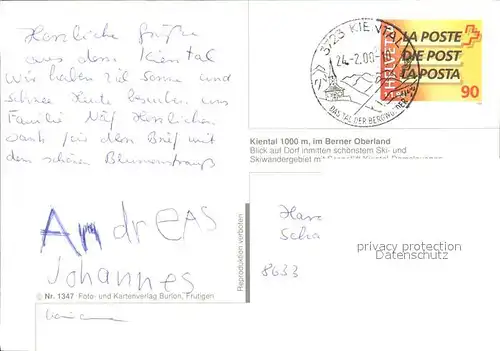 Herzliche Grüße
aus dem Kiental
Wir haben viel Sonne und
schnee Heute besuchen uns
Familie Näf Herzlichen
Dank für den Brief mit
dem schönen Blumenstrauß
AndrEAS
Johannes
© Nr. 1347 Foto- und Kartenverlag Burlon, Frutigen
Reproduktion verboten
3723 KIENTAL
24.-2.00-
DAS TAL DER BERGWUNDER
HELVETIA
LA POSTE
DIE POST
LA POSTA
90
Kiental 1000 m, im Berner Oberland
Blick auf Dorf inmitten schönstem Ski- und
Skiwandergebiet mit
Scha
8633
privacy protection
Datenschutz